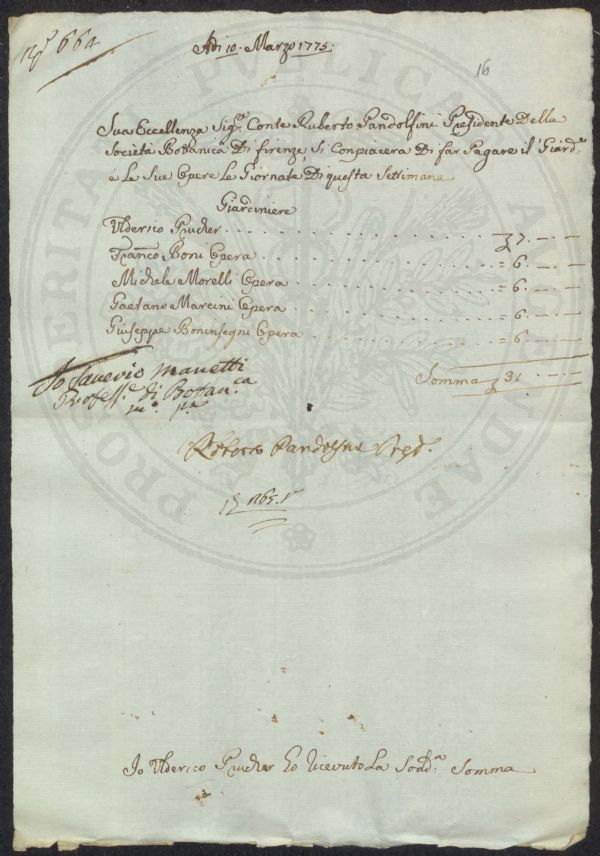 N.º 664
Adi 10. Marzo 1775.
16
Sua Eccellenza Sig.ª Conte Ruberto Pandolfini Presidente Della
Società Bottanica Di firenze, Si Conpiacera Di far Pagare il Giard.e
é La Sue Opere Le Giornate Di questa Settimana
Giardiniere
Ulderico Prucker 7. — —
Franco Boni Opera = 6. — —
Michele Morelli Opera = 6. — —
Gaetano Marcini Opera = 6. — —
Giuseppe Boninsegni Opera = 6. — —
Io Saverio Manetti
Profess.e di Botan.ca
m.º p.ª
Somma 31. — —
Roberto Pandolfini Presid.
1765.
Io Ulderico Prucker ho ricevuto La Sodd.ª Somma
PROSPERITATI PUBLICAE AUGENDAE